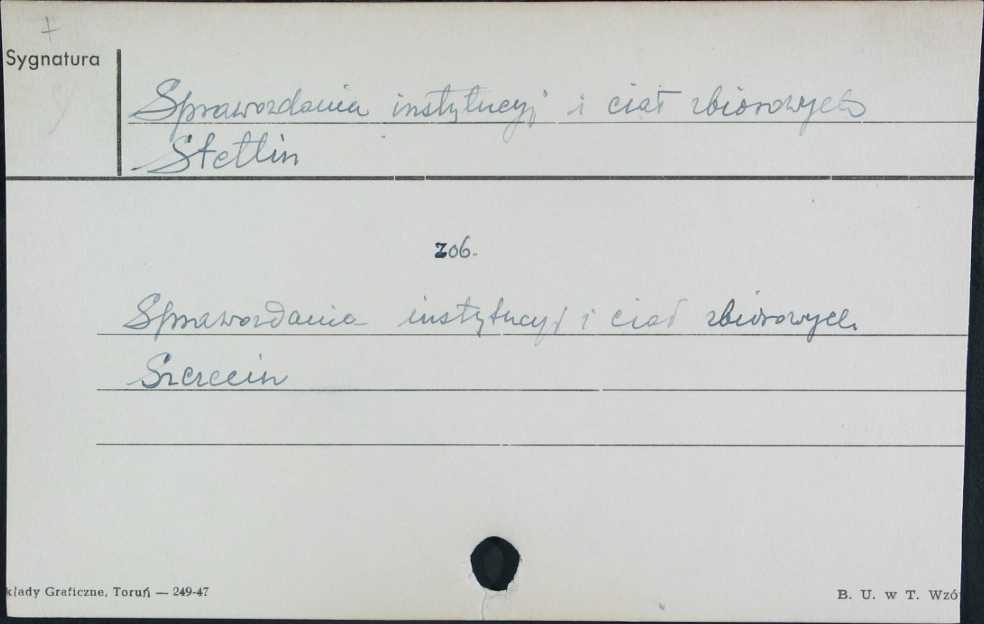 +
Sygnatura
Sprawozdania instytucyj i ciał zbiorowych
Stettin
zob.
Sprawozdania instytucyj i ciał zbiorowych
Szczecin
kłady Graficzne, Toruń — 249-47
B. U. w T. Wzó